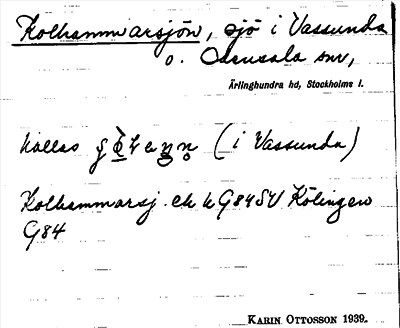 Kolhammarsjön, sjö i Vassunda
o. Odensala snr,
Ärlinghundra hd, Stockholms l.
kallas (i Vassunda)
Kolhammarsj. ek h G84SV Kölingen
G84
KARIN OTTOSSON 1939.